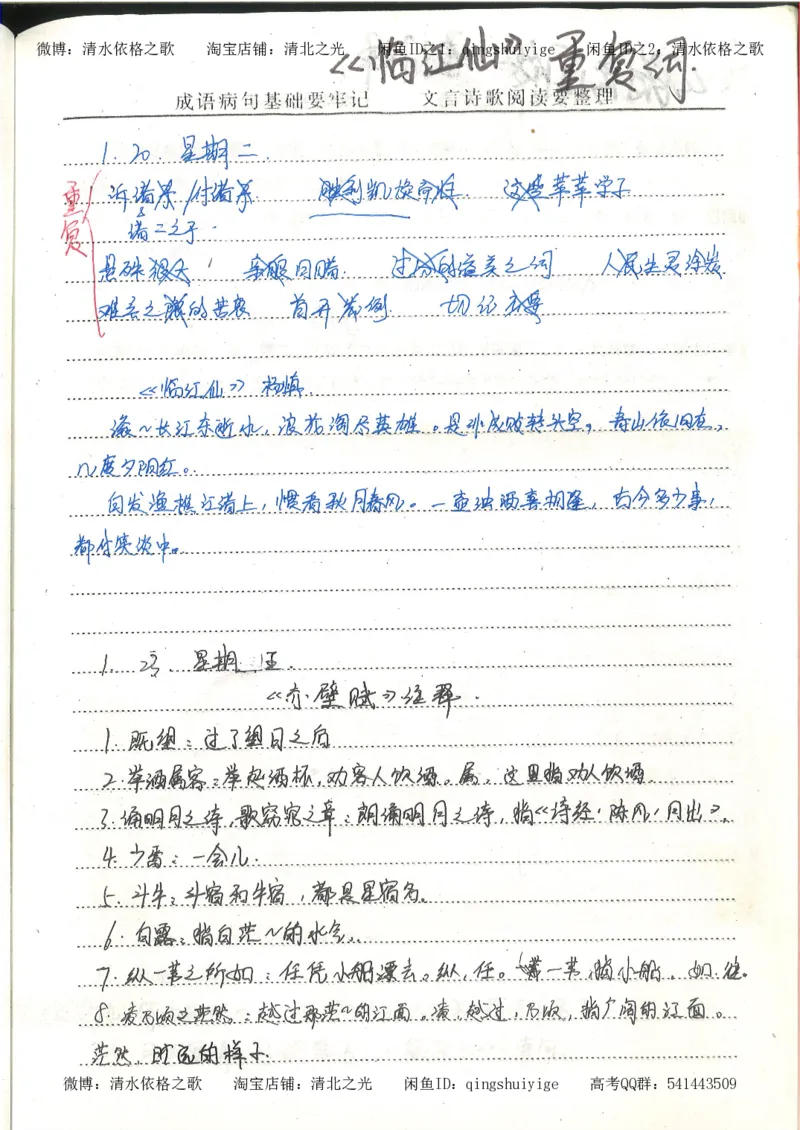 微博：清水依格之歌 淘宝店铺：清北之光 闲鱼ID之1：qingshuiyige 闲鱼ID之2：清水依格之歌
《临江仙》重复词.
成语病句基础要牢记 文言诗歌阅读要整理
1. 20. 星期二.
重复
诉诸于/付诸于 胜利凯旋而归 这些莘莘学子
诸=之于.
悬殊很大 亲眼目睹 过分的溢美之词 人民生灵涂炭
难言之隐的苦衷 首开先例 切记不要
《临江仙》杨慎.
滚~长江东逝水，浪花淘尽英雄。是非成败转头空。青山依旧在，
几度夕阳红。
白发渔樵江渚上，惯看秋月春风。一壶浊酒喜相逢，古今多少事，
都付笑谈中。
1. 23. 星期五.
《赤壁赋》注释.
1. 既望：过了望日之后
2. 举酒属客：举起酒杯，劝客人饮酒。属，这里指劝人饮酒
3. 诵明月之诗，歌窈窕之章：朗诵明月之诗，指《诗经·陈风·月出》。
4. 少焉：一会儿.
5. 斗牛：斗宿和牛宿，都是星宿名。
6. 白露：指白茫~的水气.
7. 纵一苇之所如：任凭小船漂去。纵，任。一苇，指小船。如，往。
8. 凌万顷之茫然：越过那茫~的江面。凌，越过，万顷，指广阔的江面。
茫然，旷远的样子.
微博：清水依格之歌 淘宝店铺：清北之光 闲鱼ID：qingshuiyige 高考QQ群：541443509